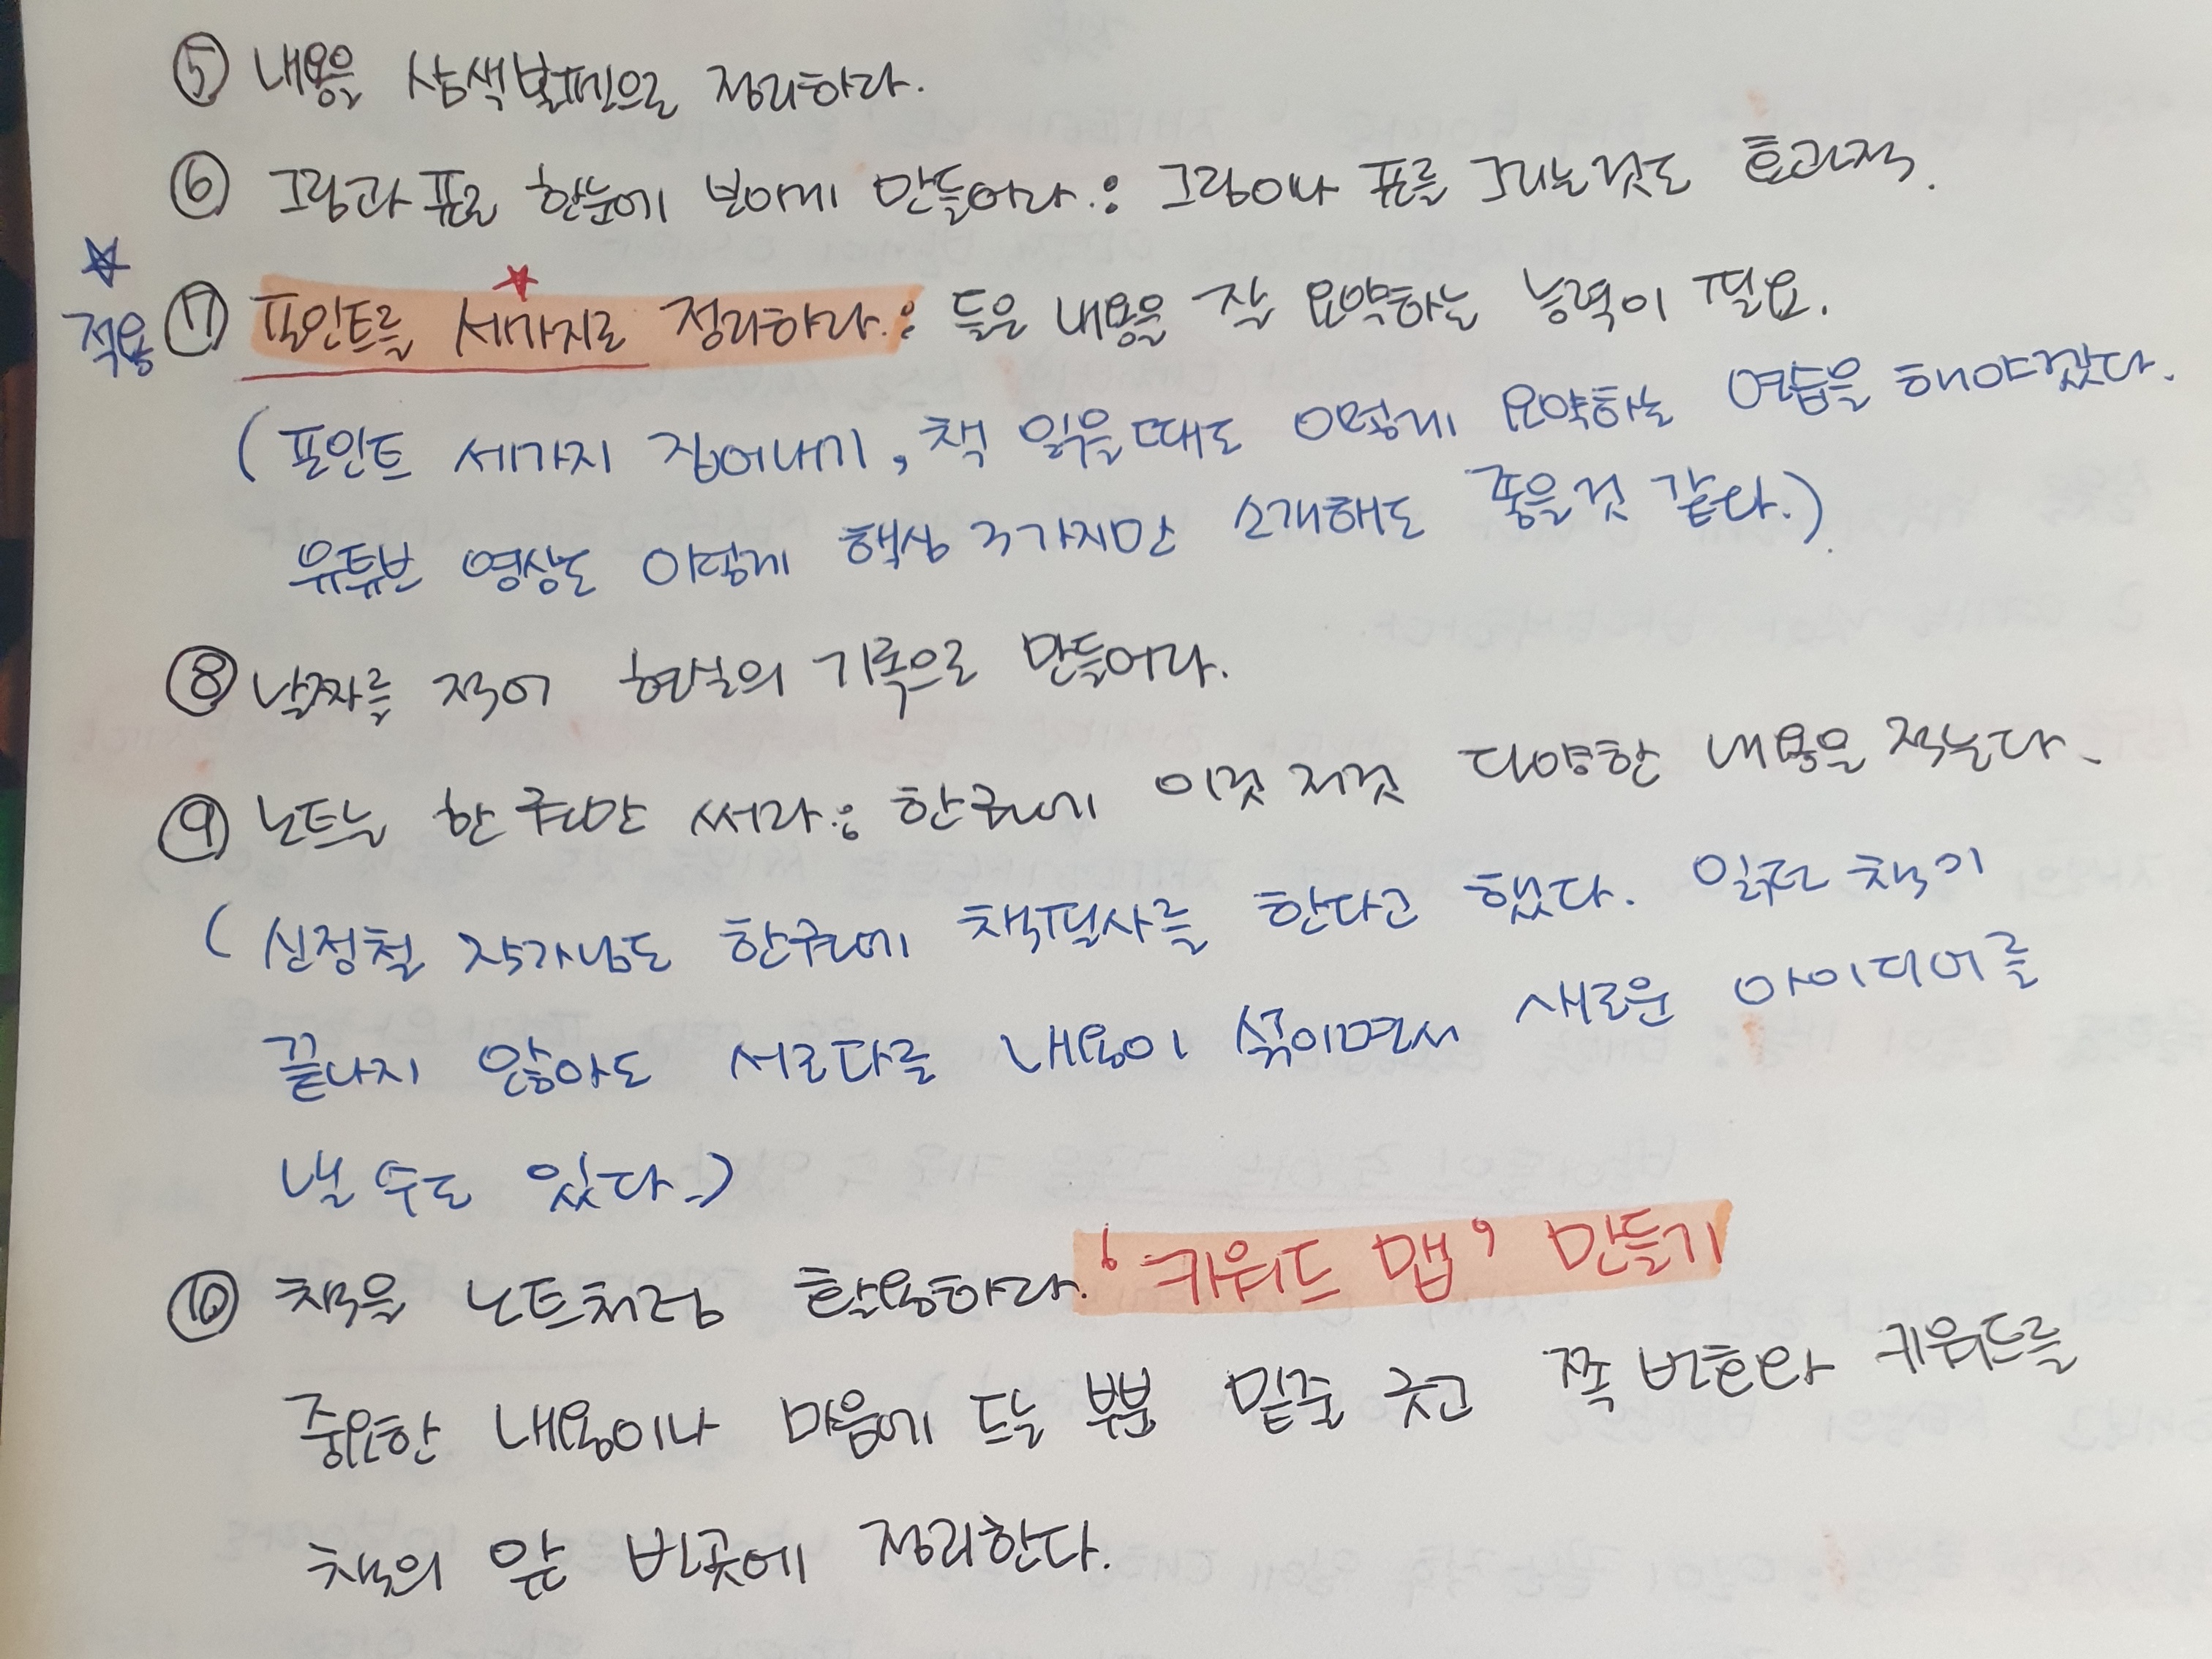 ⑤ 내용을 삼색볼펜으로 정리하라.
⑥ 그림과 표로 한눈에 보이게 만들어라.: 그림이나 표를 그리는것도 효과적.
☆
적용 ⑦ 포인트를 세가지로 정리하라.: 들은 내용을 잘 요약하는 능력이 필요.
(포인트 세가지 집어내기, 책 읽을때도 이렇게 요약하는 연습을 해야겠다.
유튜브 영상도 이렇게 핵심 3가지만 소개해도 좋을것 같다.)
⑧ 날짜를 적어 현실의 기록으로 만들어라.
⑨ 노트는 한 권만 써라.: 한권에 이것 저것 다양한 내용을 적는다.
(신정철 작가님도 한권에 책필사를 한다고 했다. 읽던 책이
끝나지 않아도 서로다른 내용이 섞이면서 새로운 아이디어를
낼 수도 있다.)
⑩ 책을 노트처럼 활용하라. '키워드 맵' 만들기
중요한 내용이나 마음에 드는 부분 밑줄 긋고 쪽 번호와 키워드를
책의 앞 빈곳에 정리한다.